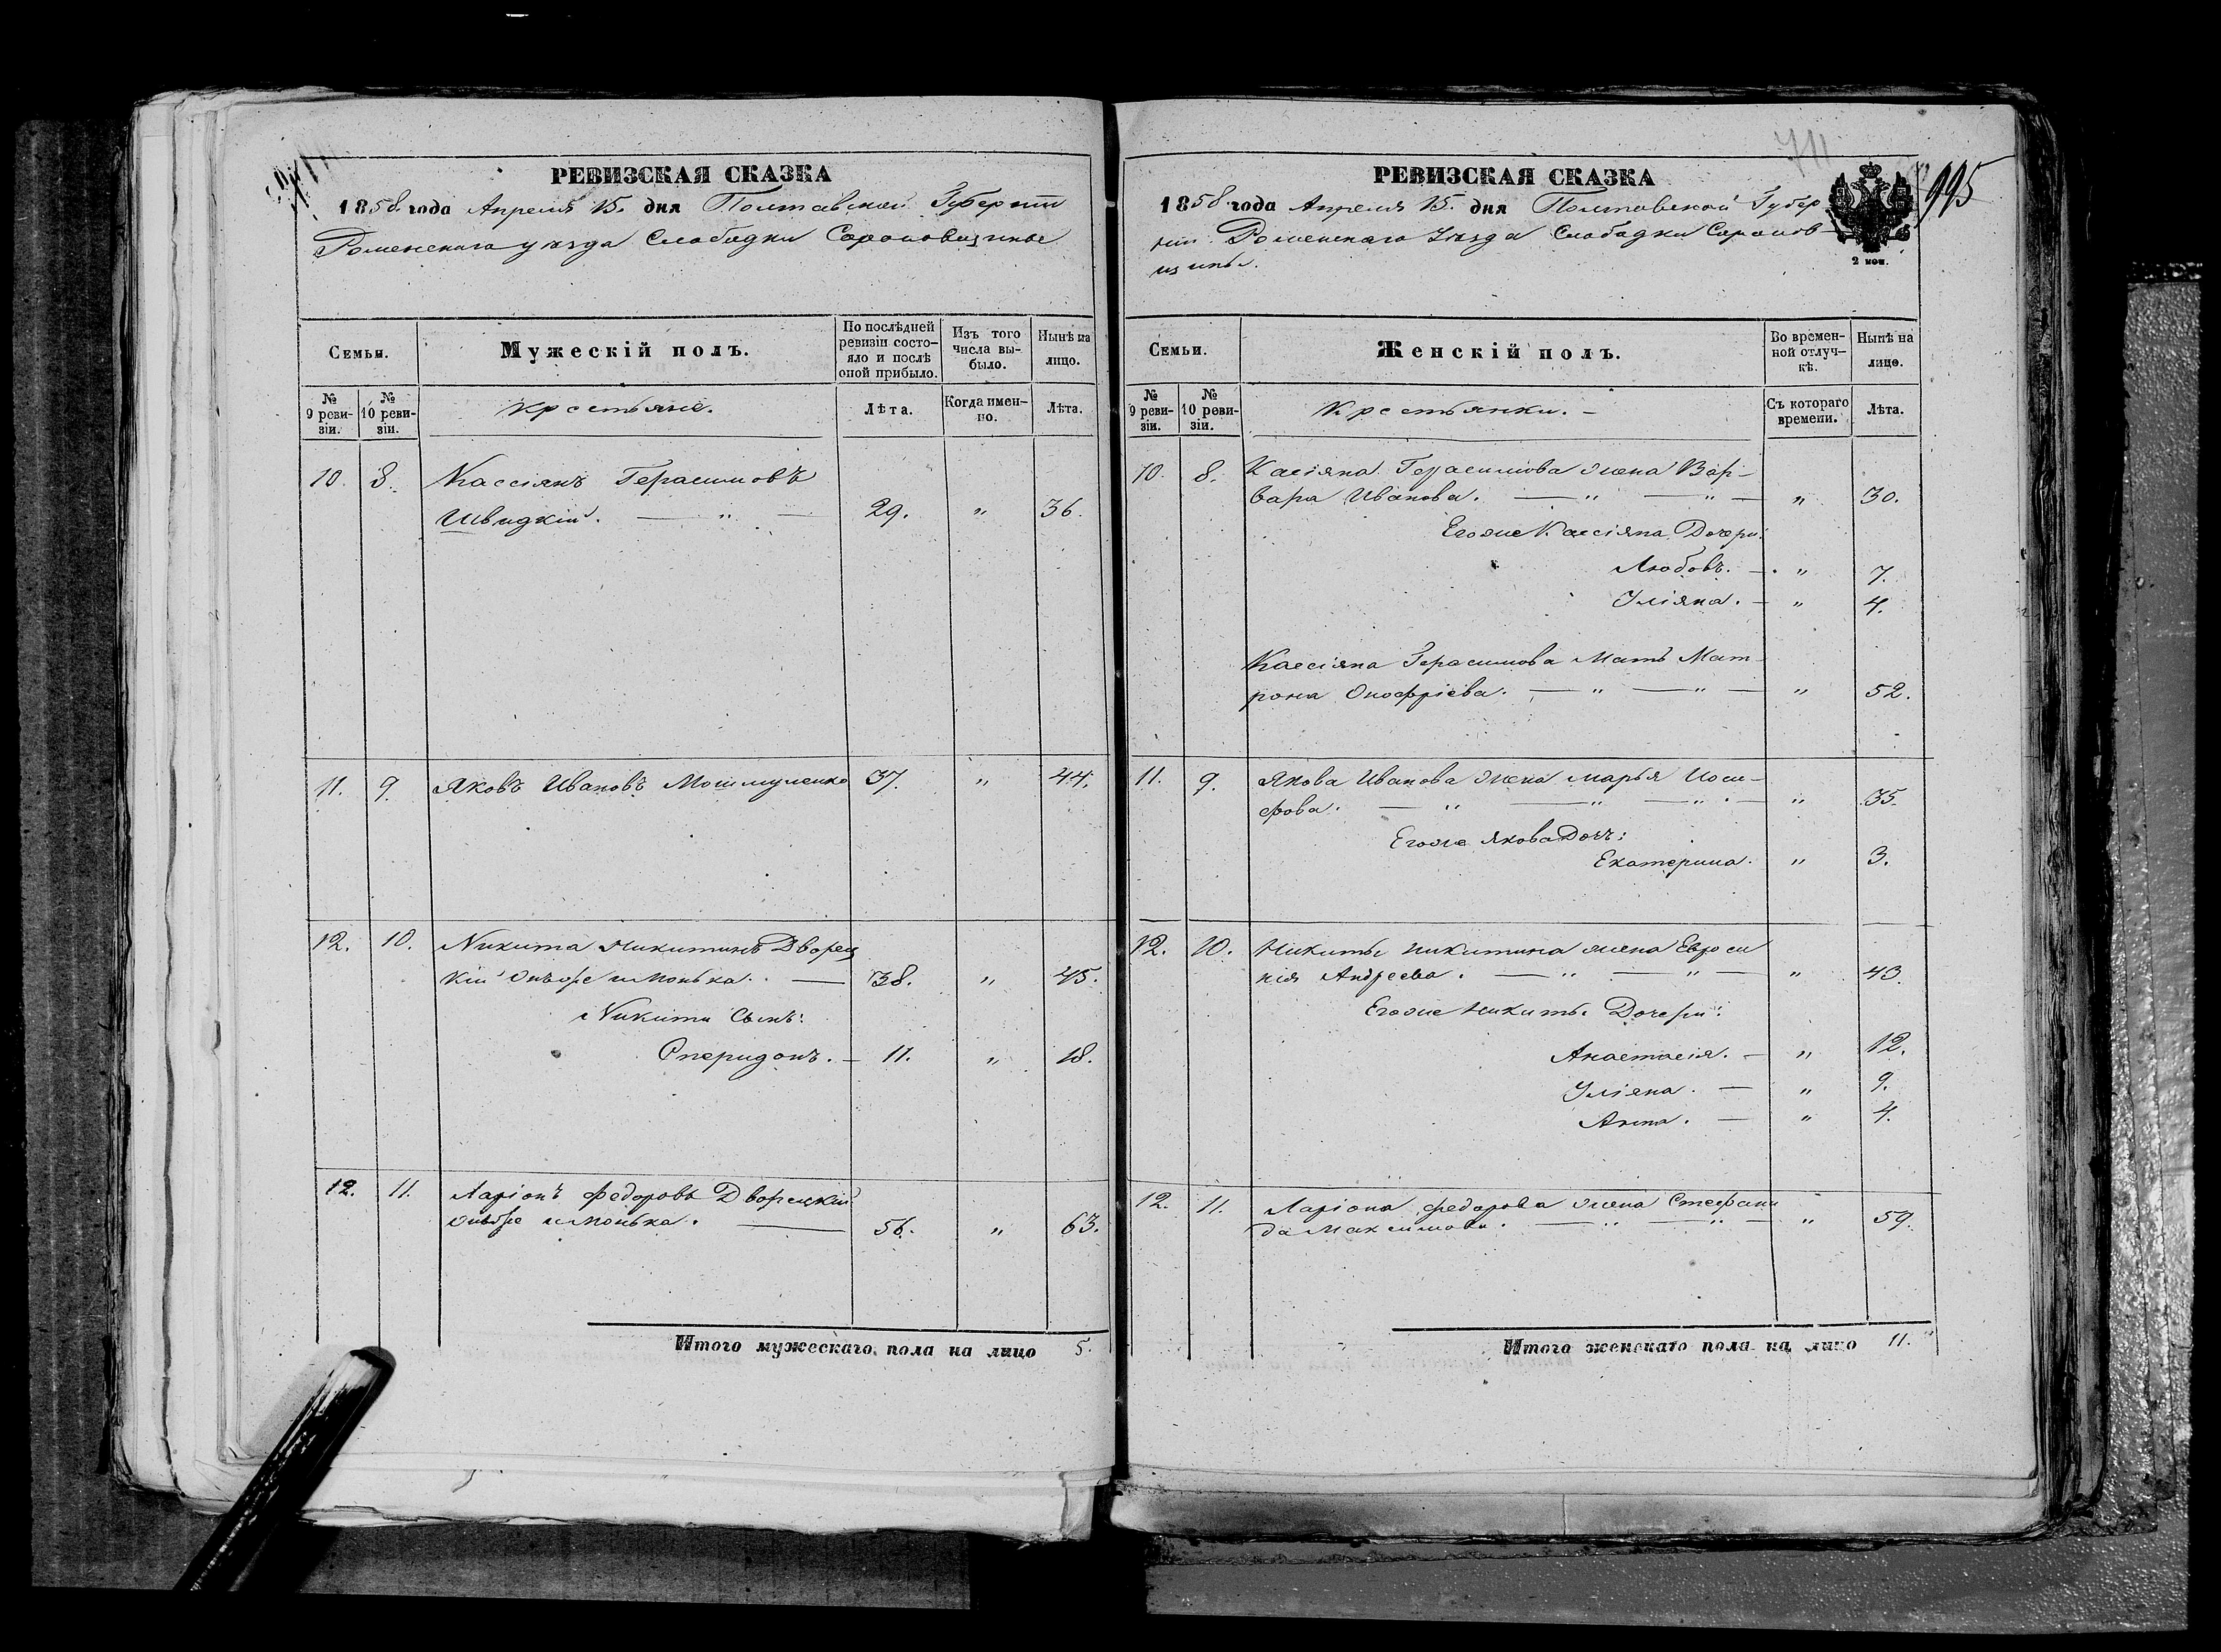 РЕВИЗСКАЯ СКАЗКА
1858 года Апреля 15. дня Полтавской Губерніи
Роменскаго уѣзда Слободки
Семьи.
Мужескій полъ.
По послѣдней ревизіи состо-яло и послѣ оной прибыло.
Изъ того числа вы-было.
Нынѣ на лицо.
№ 9 реви-зіи.
№ 10 реви-зіи.
Крестьяне.
Лѣта.
Когда имен-но.
Лѣта.
10. 8. Кассіянъ Герасимовъ
Швидкій. — " — 29. " 36.
11. 9. Яковъ Ивановъ 37. " 44.
12. 10. Никита Никитинъ Дворец
кій онъже и Монька. — 38. " 45.
Никиты Сынъ:
Спиридонъ. — 11. " 18.
12. 11. Ларіонъ Федоровъ Дворецкій
онъже и Монька. — 56. " 63.
Итого мужескаго пола на лицо 5.
711
995
РЕВИЗСКАЯ СКАЗКА
1858 года Апреля 15. дня Полтавской Губер
ніи Роменскаго Уѣзда Слободки
2 коп.
Семьи.
Женскій полъ.
Во времен-ной отлуч-кѣ.
Нынѣ на лицо.
№ 9 реви-зіи.
№ 10 реви-зіи.
Крестьянки. —
Съ котораго времени.
Лѣта.
10. 8. Касіяна Герасимова жена Вар-
вара Иванова. — " — " — " 30.
Егоже Кассіяна Дочери:
Любовь. — " 7.
Уліяна. — " 4.
Кассіяна Герасимова Мать Мат
рона Онофріева. — " — " — " 52.
11. 9. Якова Иванова жена Марья Иоси-
фова. — " — " — " — " 35.
Егоже Якова Дочь:
Екатерина. " 3.
12. 10. Никиты Никитина жена Евроси
нія Андреева. — " — " — " 43.
Егоже Никиты Дочери:
Анастасія. — " 12.
Уліяна. — " 9.
Анна. — " 4.
12. 11. Ларіона Федорова жена Стефани
да Максимова. — " — " — " 59.
Итого женскаго пола на лицо 11.